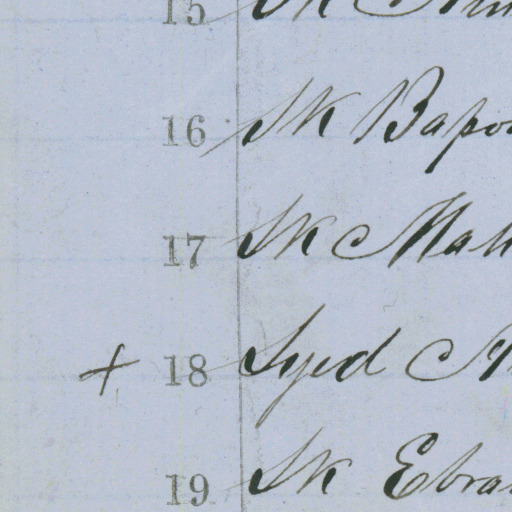 15 SK
16 SK Bapo
17 SK Mah
+ 18 Syed
19 SK Ebra